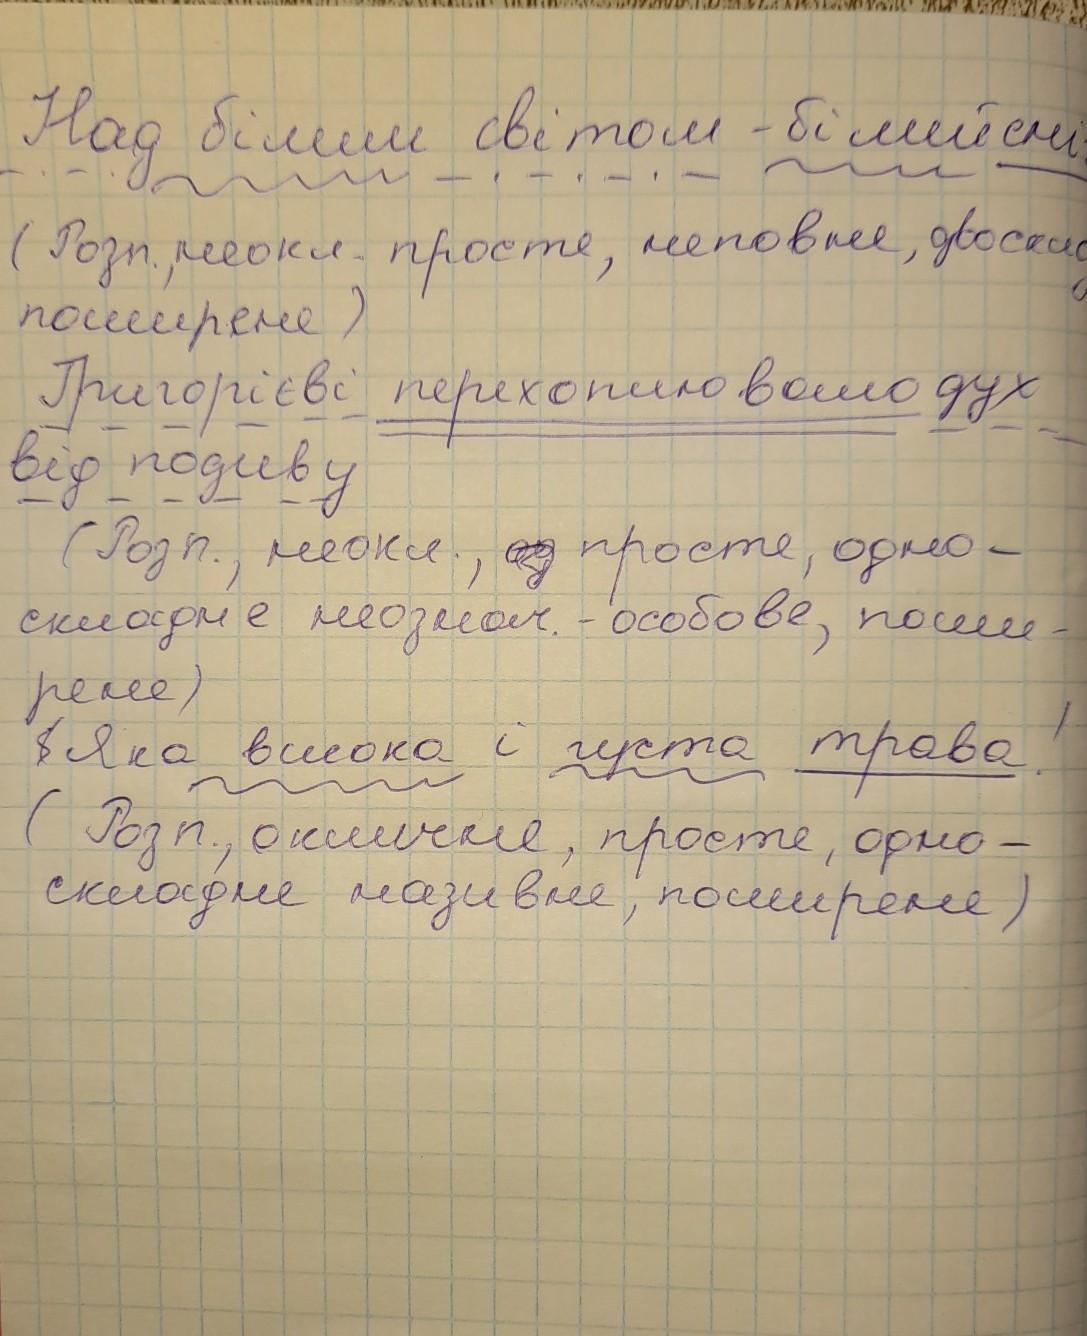 Над білим світом - білий сні
(Розп., неокл. просте, неповне, двосклад
поширене)
Григорієві перехоплювало дух
від подиву
(Розп., неокл., просте, одно-
складне неознач. - особове, поши-
рене)
Яка висока і густа трава!
(Розп., окличне, просте, одно-
складне називне, поширене)